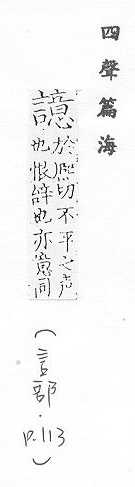 四聲篇海
譩於熙切不平之声
也恨辭也亦同
(言部.p.113)